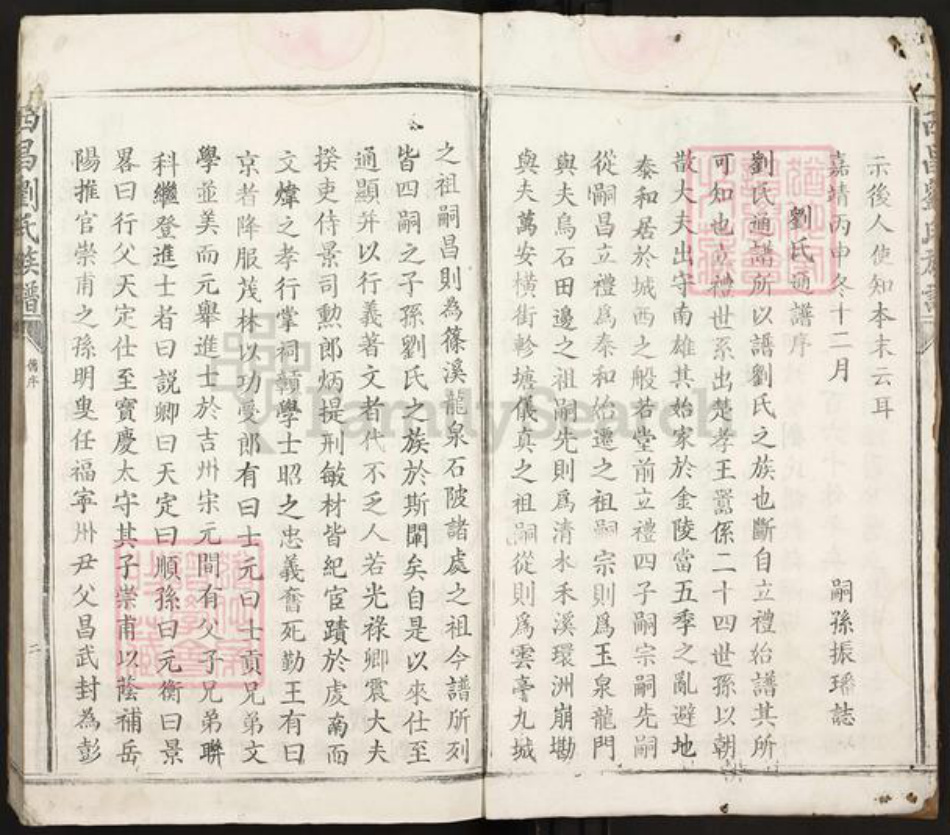 示後人使知本末云耳
嘉靖丙申冬十二月
嗣孫振璠誌
劉氏通譜序
劉氏通譜所以譜劉氏之族也斷自立禮始譜其所
可知也立禮世系出楚孝王囂係二十四世孫以朝
散大夫出守南雄其始家於金陵當五季之亂避地
泰和居於城西之般若堂前立禮四子嗣宗嗣先嗣
從嗣昌立禮爲泰和始遷之祖嗣宗則爲玉泉龍門
與夫烏石田邊之祖嗣先則爲清水禾溪環洲崩勘
與夫萬安橫街軫塘儀真之祖嗣從則爲雲亭九城
之祖嗣昌則為篠溪龍泉石陂諸處之祖今譜所列
皆四嗣之子孫劉氏之族於斯闡矣自是以來仕至
通顯并以行義著文者代不乏人若光祿卿震大夫
揆吏侍景司勲郎炳提刑敏材皆紀宦蹟於虔南而
文煒之孝行掌祠顗學士昭之忠義奮死勤王有曰
京者降服茂林以功受郎有曰士元曰士貢兄弟文
學並美而元舉進士於吉州宋元間有父子兄弟聯
科繼登進士者曰説卿曰天定曰順孫曰元衡曰景
畧曰行父天定仕至寶慶太守其子崇甫以蔭補岳
陽推官崇甫之孫明叟任福寧州尹父昌武封為彭
西昌劉氏族譜
舊序
二
FamilySearch